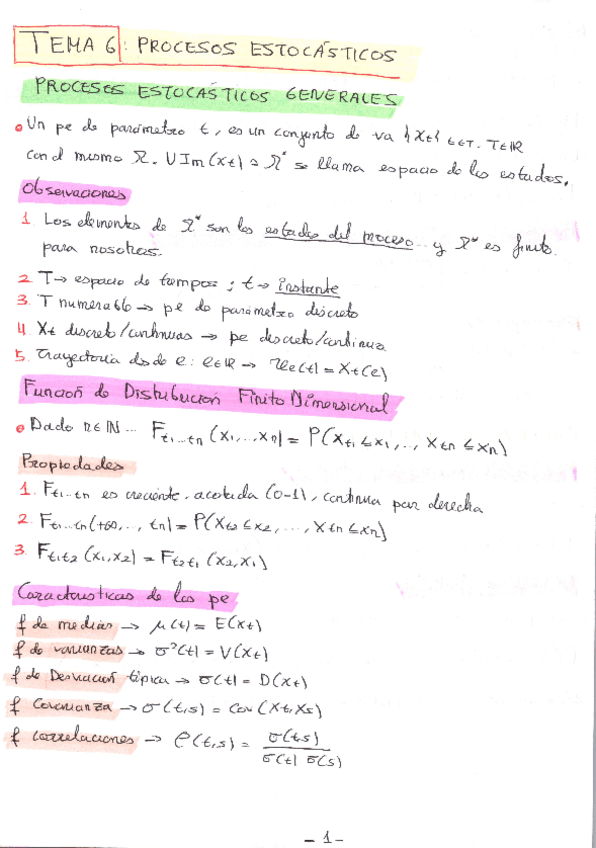 TEMA 6: PROCESOS ESTOCÁSTICOS
PROCESOS ESTOCÁSTICOS GENERALES
• Un pe de parámetro t, es un conjunto de va {Xt} t∈T. T∈ℝ
con el mismo Ω. ∪Im(Xt) = Ω* se llama espacio de los estados.
Observaciones
1. Los elementos de Ω* son los estados del proceso... y Ω* es finito
para nosotros.
2. T → espacio de tiempos ; t → instante
3. T numerable → pe de parámetro discreto
4. Xt discreto/continuas → pe discreto/continuo
5. Trayectoria desde e: e∈Ω → xe(t) = Xt(e)
Función de Distribución Finito Dimensional
• Dado n∈ℕ... Ft1...tn (x1,...,xn) = P(Xt1 ≤ x1,..., Xtn ≤ xn)
Propiedades
1. Ft1...tn es creciente, acotada (0-1), continua por derecha
2. Ft1...tn(+∞,..., tn) = P(Xt2 ≤ x2,..., Xtn ≤ xn)
3. Ft1t2 (x1,x2) = Ft2t1 (x2,x1)
Características de los pe
f de medias → μ(t) = E(Xt)
f de varianzas → σ²(t) = V(Xt)
f de Desviación típica → σ(t) = D(Xt)
f Covarianza → σ(t,s) = Cov(Xt,Xs)
f correlaciones → ρ(t,s) = σ(t,s) / σ(t) σ(s)
- 1 -